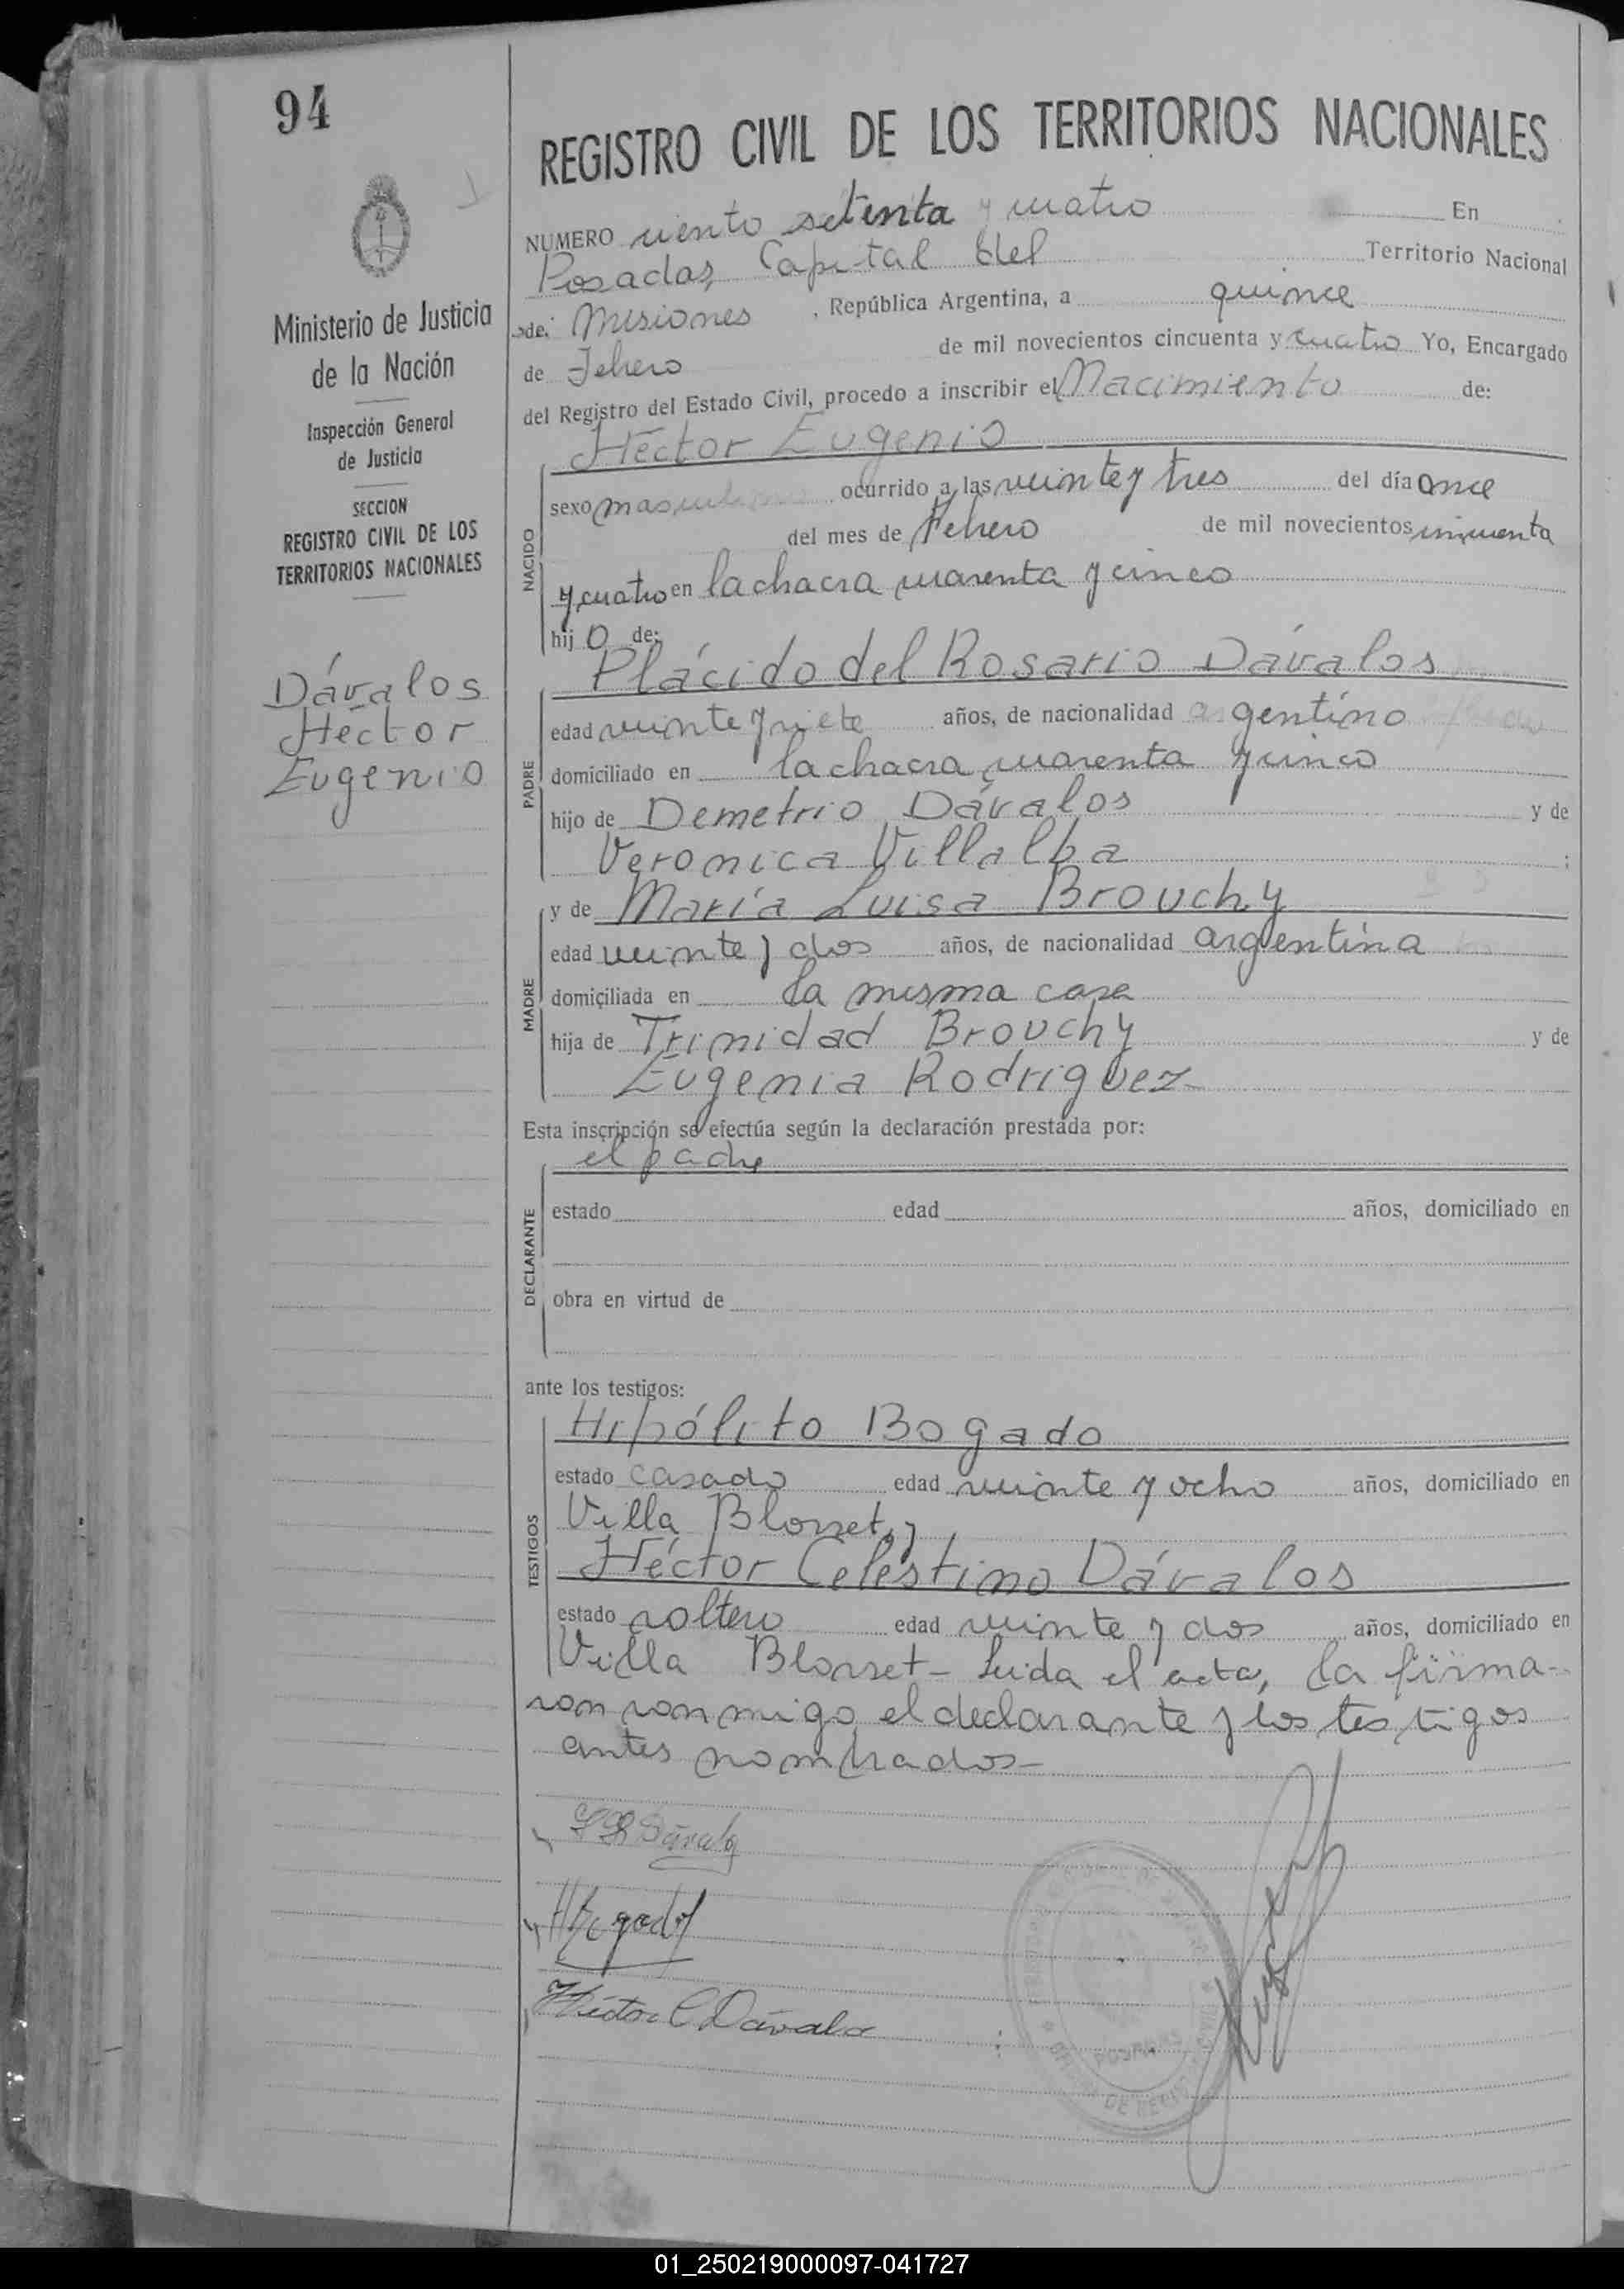 94
REGISTRO CIVIL DE LOS TERRITORIOS NACIONALES
NUMERO ciento setenta y cuatro En
Posadas, Capital del Territorio Nacional
de Misiones, República Argentina, a quince
de Febrero de mil novecientos cincuenta y cuatro Yo, Encargado
del Registro del Estado Civil, procedo a inscribir el Nacimiento de:
Héctor Eugenio
Ministerio de Justicia
de la Nación
Inspección General
de Justicia
SECCION
REGISTRO CIVIL DE LOS
TERRITORIOS NACIONALES
Dávalos
Héctor
Eugenio
NACIDO
sexo masculino ocurrido a las veinte y tres del día once
del mes de Febrero de mil novecientos cincuenta
y cuatro en la chacra cuarenta y cinco
hijo de:
Plácido del Rosario Dávalos
PADRE
edad veinte y siete años, de nacionalidad argentino
domiciliado en la chacra cuarenta y cinco
hijo de Demetrio Dávalos y de
Veronica Villalba ;
MADRE
y de María Luisa Brouchy
edad veinte y dos años, de nacionalidad argentina
domiciliada en la misma casa
hija de Trinidad Brouchy y de
Eugenia Rodriguez
Esta inscripción se efectúa según la declaración prestada por:
el padre
DECLARANTE
estado edad años, domiciliado en
obra en virtud de
ante los testigos:
TESTIGOS
Hipólito Bogado
estado casado edad veinte y ocho años, domiciliado en
Villa Blosset, y
Héctor Celestino Dávalos
estado soltero edad veinte y dos años, domiciliado en
Villa Blosset - Leida el acta, la firma-
ron conmigo el declarante y los testigos
antes nombrados-
Dávalos
HBogado
Héctor C Dávalos
POSADAS
01_250219000097-041727